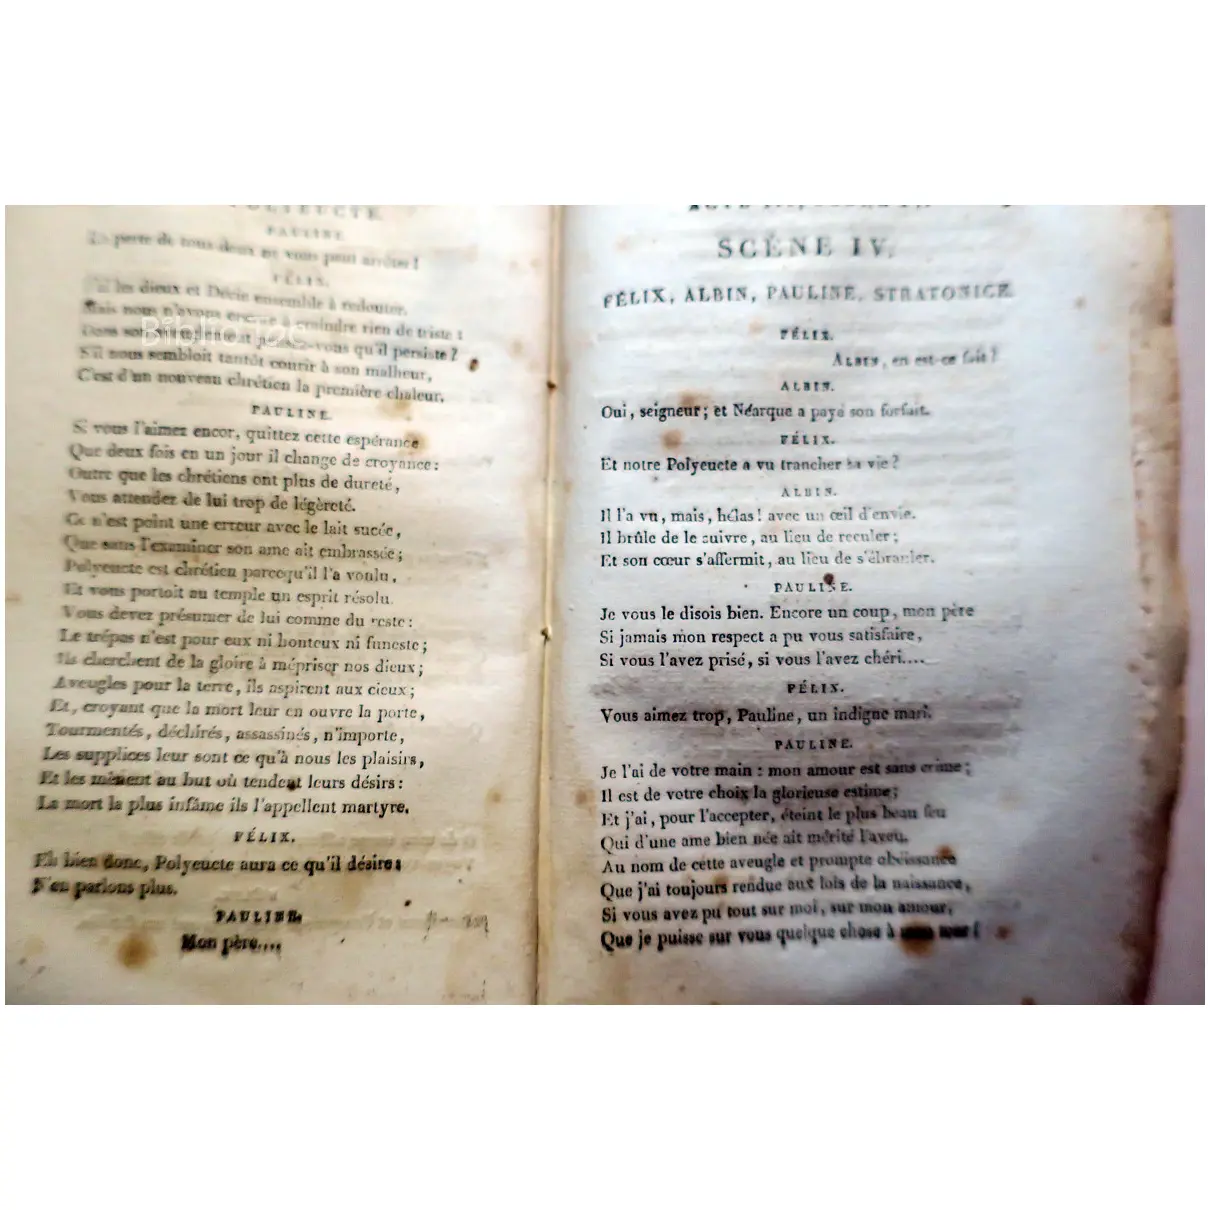 POLYEUCTE
PAULINE.
La perte de tous deux ne vous peut arrêter!
FÉLIX.
J'ai les dieux et Décie ensemble à redouter.
Mais nous n'avons encore à craindre rien de triste:
Dans son aveuglement -vous qu'il persiste?
S'il nous sembloit tantôt courir à son malheur,
C'est d'un nouveau chrétien la première chaleur.
PAULINE.
Si vous l'aimez encor, quittez cette espérance
Que deux fois en un jour il change de croyance:
Outre que les chrétiens ont plus de dureté,
Vous attendez de lui trop de légèreté.
Ce n'est point une erreur avec le lait sucée,
Que sans l'examiner son ame ait embrassée;
Polyeucte est chrétien parcequ'il l'a voulu,
Et vous portoit au temple un esprit résolu.
Vous devez présumer de lui comme du reste:
Le trépas n'est pour eux ni honteux ni funeste;
Ils cherchent de la gloire à mépriser nos dieux;
Aveugles pour la terre, ils aspirent aux cieux;
Et, croyant que la mort leur en ouvre la porte,
Tourmentés, déchirés, assassinés, n'importe,
Les supplices leur sont ce qu'à nous les plaisirs,
Et les mènent au but où tendent leurs désirs:
La mort la plus infâme ils l'appellent martyre.
FÉLIX.
Eh bien donc, Polyeucte aura ce qu'il désire:
N'en parlons plus.
PAULINE.
Mon père....
SCÈNE IV.
FÉLIX, ALBIN, PAULINE, STRATONICE.
FÉLIX.
ALBIN, en est-ce fait?
ALBIN.
Oui, seigneur; et Néarque a payé son forfait.
FÉLIX.
Et notre Polyeucte a vu trancher sa vie?
ALBIN.
Il l'a vu, mais, hélas! avec un œil d'envie.
Il brûle de le suivre, au lieu de reculer;
Et son cœur s'affermit, au lieu de s'ébranler.
PAULINE.
Je vous le disois bien. Encore un coup, mon père
Si jamais mon respect a pu vous satisfaire,
Si vous l'avez prisé, si vous l'avez chéri....
FÉLIX.
Vous aimez trop, Pauline, un indigne mari.
PAULINE.
Je l'ai de votre main: mon amour est sans crime;
Il est de votre choix la glorieuse estime;
Et j'ai, pour l'accepter, éteint le plus beau feu
Qui d'une ame bien née ait mérité l'aveu.
Au nom de cette aveugle et prompte obéissance
Que j'ai toujours rendue aux lois de la naissance,
Si vous avez pu tout sur moi, sur mon amour,
Que je puisse sur vous quelque chose à mon tour!